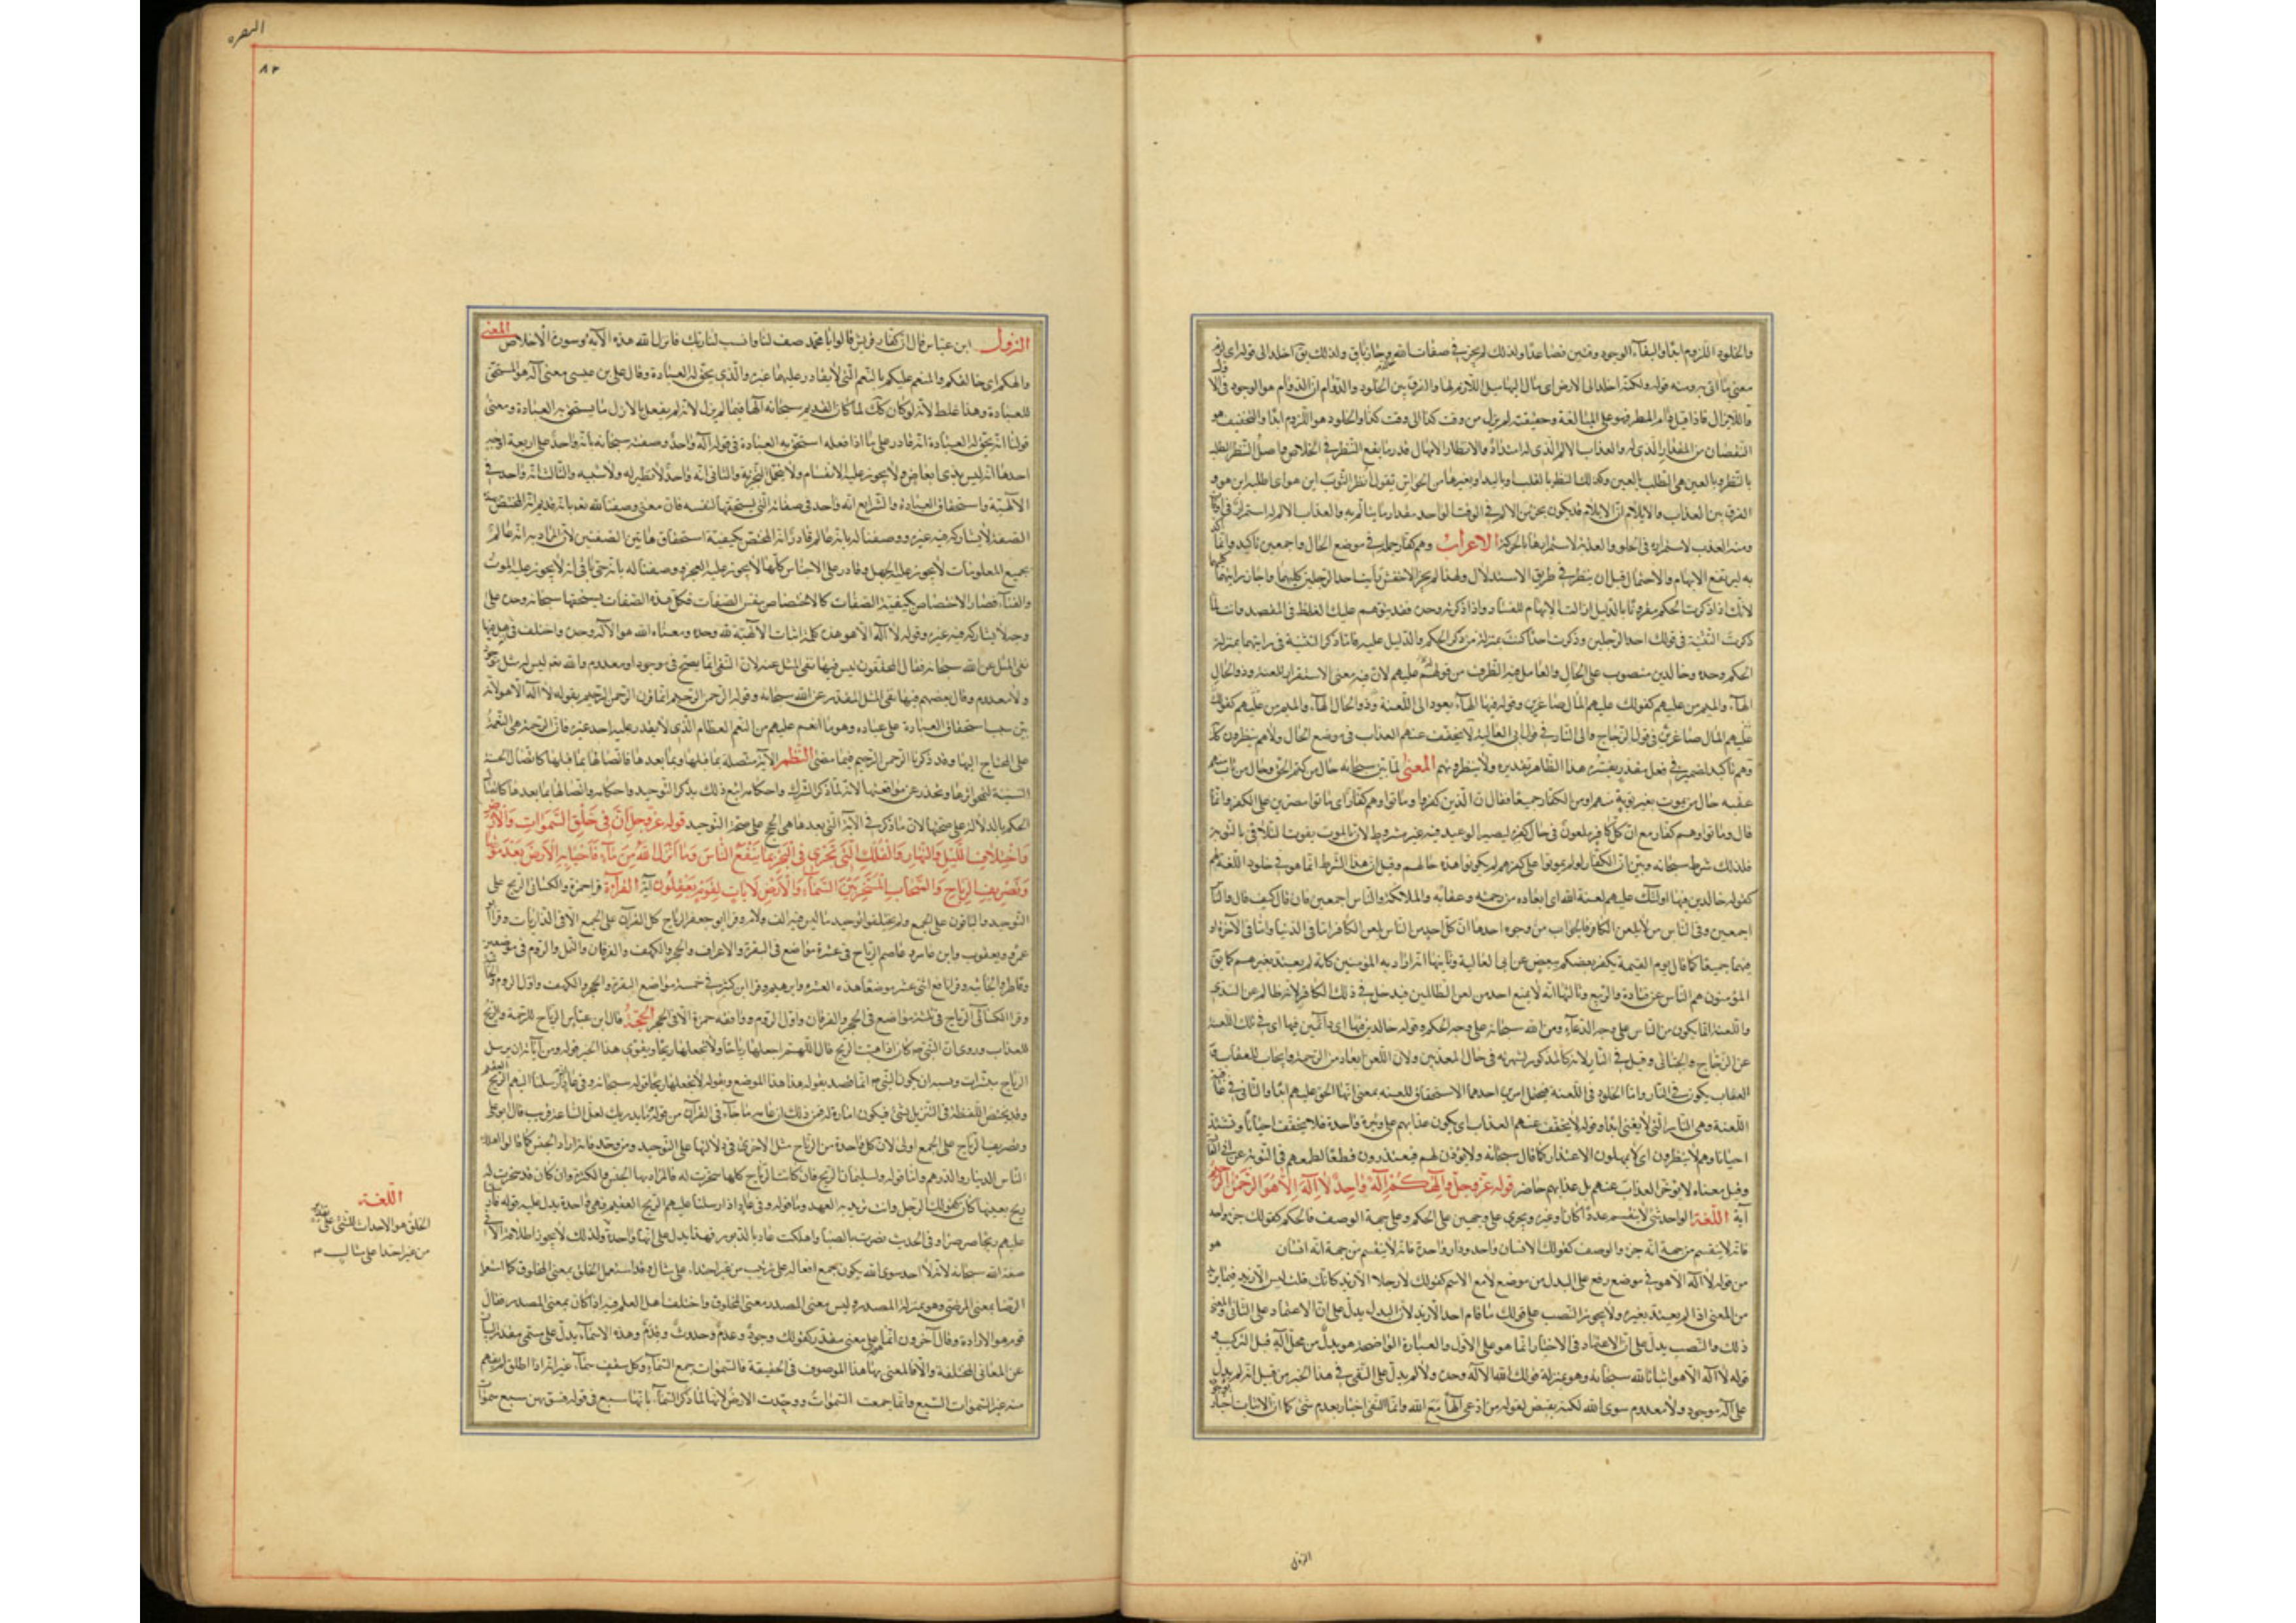 والخلود اللزوم ابدا والبقاء الوجود وقتين فصاعدا ولذلك لم يجز في صفات الله وجاز باق ولذلك يق اخلد الى قوله اى لزم
معنى ما اتى به ومنه قوله ولكنه اخلد الى الارض اى مال اليها ميل اللازم لها والفرق بين الخلود والدوام ان الدوام هو الوجود فى الا
واللايزال فاذا قيل دام المطر فهو على المبالغة وحقيقته لم يزل من وقت كذا الى وقت كذا والخلود هو اللزوم ابدا والتخفيف هو
النقصان من المقدار الذى له والعذاب الالم الذى له امتداد والانظار الامهال قدر ما يقع النظر فى الخلاص واصل النظر الطلب
بالنظر وبالعين هى الطلب بالعين وكذلك النظر بالقلب وباليد او بغيرها من الحواس تقول انظر الثوب اين هو اى اطلبه اين هو و
الفرق بين العذاب والايلام ان الايلام قد يكون بجزء من الالم فى الوقت الواحد مقدار ما يتألم به والعذاب الالم له استمرار فى اوقات
ومنه العذب لاستمراره فى الحلق والعذبة لاستمرارها بالحركة الاعراب وهم كفار جملة فى موضع الحال واجمعين تاكيد وانما
به ليرتفع الابهام والاحتمال قبل ان ينظر فى طريق الاستدلال ولهذا لم يجز الاخفش رايت احد الرجلين كليهما واجاز رايتهما
لانك اذا ذكرت الحكم مقرونا بالدليل ازالت الابهام للفساد واذا ذكرته وحده فقد يتوهم عليك الغلط فى المقصد وانت لما
ذكرت التثنية فى قولك احد الرجلين وذكرت احدا كنت بمنزلة من ذكر الحكم والدليل عليه فاما ذكر التثنية فى رايتهما بمنزلة
الحكم وحده وخالدين منصوب على الحال والعامل فيه الظرف من قوله عليهم لان فيه معنى الاستقرار للعنة وذو الحال
الهاء والميم من عليهم كقولك عليهم المال صاغرين وقوله فيها الهاء يعود الى اللعنة وذو الحال الهاء والميم من عليهم كقولك
عليهم المال صاغرين فى قول الزجاج والى النار فى قول ابى العالية لا يخفف عنهم العذاب فى موضع الحال ولا هم ينظرون كذ
وهم تاكيد لضمير فى فعل مقدر يفسره هذا الظاهر تقديره ولا ينظرون هم المعنى لما بين سبحانه حال من كتم الحق وحال من تاب منهم
عقبه حال من يموت بغير توبة منهم او من الكفار جميعا فقال ان الذين كفروا وماتوا وهم كفار اى ماتوا مصرين على الكفر وانما
قال وماتوا وهم كفار مع ان كل كافر ملعون فى حال كفره ليصير الوعيد فيه غير مشروط لان بالموت يفوت التلافى بالتوبة
فلذلك شرط سبحانه وبين ان الكفار لو لم يموتوا على كفرهم لم يكونوا هذه حالهم وقيل ان هذا الشرط انما هو فى خلود اللعنة لهم
كقوله خالدين فيها اولئك عليهم لعنة الله اى ابعاده من رحمته وعقابه والملائكة والناس اجمعين فان قال كيف قال والناس
اجمعين وفى الناس من لا يلعن الكافر فالجواب من وجوه احدها ان كل احد من الناس يلعن الكافر اما فى الدنيا واما فى الآخرة او
فيهما جميعا كما قال يوم القيمة يكفر بعضكم ببعض عن ابى العالية وثانيها انه اراد به المؤمنين كانه لم يعتد بغيرهم كما يق
المؤمنون هم الناس عن قتادة والربيع وثالثها انه لا يمتنع احد من لعن الظالمين فيدخل فى ذلك الكافر لانه ظالم عن السدى
واللعنة انما يكون من الناس على وجه الدعاء ومن الله سبحانه على وجه الحكم وقوله خالدين فيها اى دائمين فيها اى فى تلك اللعنة
عن الزجاج والجبائى وقيل فى النار لانه كالمذكور لشهرته فى حال المعذبين ولان اللعن ابعاد من الرحمة وايجاب للعقاب
العقاب يكون فى النار واما الخلود فى اللعنة فيحتمل امرين احدهما الاستحقاق للعنة بمعنى انها الحق عليهم ابدا والثانى فى عاقبة
اللعنة وهى النار التى لا يفنى ابدا وقوله لا يخفف عنهم العذاب اى يكون عذابهم على وتيرة واحدة فلا يخفف احيانا وتشتد
احيانا وهم لا ينظرون اى لا يمهلون الاعتذار كما قال سبحانه ولا يؤذن لهم فيعتذرون قطعا لطمعهم فى التوبة عن ابى العا
وقيل معناه لا يؤخر العذاب عنهم بل عذابهم حاضر قوله عز وجل والهكم اله واحد لا اله الا هو الرحمن الرحيم
آية اللغة الواحد شئ لا ينقسم عددا كان او غيره ويجرى على وجهين على الحكم وعلى جهة الوصف فالحكم كقولك جزء واحد
فانه لا ينقسم من جهة انه جزء والوصف كقولك الانسان واحد ودار واحدة فانه لا ينقسم من جهة انه انسان هو
من قوله لا اله الا هو فى موضع رفع على البدل من موضع لا مع الاسم كقولك لا رجل الا زيد كانك قلت ليس الا زيد فيما تريد
من المعنى اذا لم يعتد بغيره ولا يجوز النصب على قولك ما قام احد الا زيد لان البدل يدل على ان الاعتماد على الثانى والمعنى
ذلك والنصب يدل على ان الاعتماد فى الاخبار انما هو على الاول والعبارة الواضحة هو بدل من محل اله قبل التركيب و
قوله لا اله الا هو اثباتا لله سبحانه وهو بمنزلة قولك الله الاله وحده ولا لم يدل على النفى فى هذا الخبر من قبل انه لم يدل
على اله موجود ولا معدوم سوى الله لكنه نقيض لقوله من ادعى الها مع الله وانما النفى اخبار بعدم شئ كما ان الاثبات اخبار
النزول
البقره
٨٣
النزول ابن عباس قال ان كفار قريش قالوا يا محمد صف لنا وانسب لنا ربك فانزل الله هذه الآية وسورة الاخلاص المعنى
والهكم اى خالقكم والمنعم عليكم بالنعم التى لا يقادر عليها غيره والذى يحق له العبادة وقال على بن عيسى معنى اله هو المستحق
للعبادة وهذا غلط لانه لو كان كك لما كان القديم سبحانه الها فيما لم يزل لانه لم يفعل بالازل ما يستحق به العبادة ومعنى
قولنا انه يحق له العبادة انه قادر على ما اذا فعله استحق به العبادة فى قوله اله واحد وصفه سبحانه بانه واحد على اربعة اوجه
احدها انه ليس بذى ابعاض ولا يجوز عليه الانقسام ولا يحتمل التجزية والثانى انه واحد لا نظير له ولا شبيه والثالث انه واحد فى
الآلهية واستحقاق العبادة والرابع انه واحد فى صفاته التى يستحقها لنفسه فان معنى وصفنا لله تعالى بانه قديم انه المختص بهذه
الصفة لا يشاركه فيه غيره ووصفنا له بانه عالم قادر انه المختص بكيفية استحقاق هاتين الصفتين لان المراد به انه عالم
بجميع المعلومات لا يجوز عليه الجهل وقادر على الاجناس كلها لا يجوز عليه العجز ووصفنا له بانه حى باق انه لا يجوز عليه الموت
والفناء فصار الاختصاص بكيفية الصفات كالاختصاص بنفس الصفات فكل هذه الصفات يستحقها سبحانه وحده على
وجه لا يشاركه فيه غيره وقوله لا اله الا هو هذه كلمة لاثبات الآلهية لله وحده ومعناه الله هو الاله وحده واختلف فى هل فيها
نفى المثل عن الله سبحانه فقال المحققون ليس فيها نفى المثل عنه لان النفى انما يصح فى موجود او معدوم والله تعم ليس له مثل موجود
ولا معدوم وقال بعضهم فيها نفى المثل المقدر عن الله سبحانه وقوله الرحمن الرحيم انما قرن الرحمن الرحيم بقوله لا اله الا هو لانه
بين سبب استحقاق العبادة على عباده وهو ما انعم عليهم من النعم العظام الذى لا يقدر عليه احد غيره فان الرحمة هى النعمة
على المحتاج اليها وقد ذكرنا الرحمن الرحيم فيما مضى النظم الآية متصلة بما قبلها وبما بعدها فاتصالها بما قبلها كاتصال الحسنة
السيئة لتمحو اثرها ويحذر عن مواقعتها لانه لما ذكر الشرك واحكامه اتبع ذلك بذكر التوحيد واحكامه واتصالها بما بعدها كاتصال
الحكم بالدلالة على صحتها لان ما ذكر فى الآية التى بعدها هى الحجج على صحة التوحيد قوله عز وجل ان فى خلق السموات والارض
واختلاف الليل والنهار والفلك التى تجرى فى البحر بما ينفع الناس وما انزل الله من ماء فاحيا به الارض بعد موتها
وتصريف الرياح والسحاب المسخر بين السماء والارض لايات لقوم يعقلون آية القراءة قرا حمزة والكسائى الريح على
التوحيد والباقون على الجمع ولم يختلفوا توحيد ما ليس فيه الف ولام وقرا ابو جعفر الرياح كل القرآن على الجمع الا فى الذاريات وقرا ابو
عمرو ويعقوب وابن عامر وعاصم الرياح فى عشرة مواضع فى البقرة والاعراف والحجر والكهف والفرقان والنمل والروم فى موضعين
وفاطر والجاثيه وقرا نافع اثنى عشر موضعا هذه العشرة وابرهيم وقرا ابن كثير فى خمسة مواضع البقرة والحجر والكهف واول الروم والجا
وقرا الكسائى الرياح فى ثلثة مواضع فى الحجر والفرقان واول الروم ووافقه حمزة الا فى الحجر الحجة قال ابن عباس الرياح للرحمة والريح
للعذاب وروى ان النبى ص كان اذا هبت الريح قال اللهم اجعلها رياحا ولا تجعلها ريحا ويقوى هذا الخبر قوله ومن آياته ان يرسل
الرياح مبشرات ويشبه ان يكون النبى ص انما قصد بقوله هذا هذا الموضع وبقوله لا تجعلها ريحا قوله سبحانه وفى عاد اذ ارسلنا عليهم الريح العقيم
وقد يختص اللفظة فى التنزيل بشئ فيكون امارة له فمن ذلك ان عامة ما جاء فى القرآن من قوله وما يدريك لعل الساعة قريب قال ابو على
وتصريف الرياح على الجمع اولى لان كل واحدة من الرياح مثل الاخرى فى دلالتها على التوحيد ومن وحد فانه اراد الجنس كما قالوا اهلك
الناس الدينار والدرهم واما قوله ولسليمان الريح فان كانت الرياح كلها سخرت له فالمراد بها الجنس والكثرة وان كان قد سخرت له
ريح بعينها كان كقولك الرجل وانت تريد به العهد واما قوله وفى عاد اذ ارسلنا عليهم الريح العقيم فهى واحدة يدل عليه قوله فارسلنا
عليهم ريحا صرصرا وفى الحديث نصرت بالصبا واهلكت عاد بالدبور فهذا يدل على انها واحدة ولذلك لا يجوز اطلاقه الا فى
صفة الله سبحانه لانه لا احد سوى الله يكون جميع افعاله على ترتيب من غير احتذاء على مثال وقد استعمل الخلق بمعنى المخلوق كما استعمل
الرضا بمعنى المرضى وهو بمنزلة المصدر وليس معنى المصدر بمعنى المخلوق واختلف اهل العلم فيه اذا كان بمعنى المصدر فقال
قوم هو الارادة وقال آخرون انما هو على معنى مقدر كقولك وجود وعدم وحدوث وقدم وهذه الاسماء يدل على مسمى مقدر للبيان
عن المعانى المختلفة والا فالمعنى بها هذا الموصوف فى الحقيقة فالسموات جمع السماء وكل سقف سماء غير انه اذا اطلق لم يفهم
منه غير السموات السبع وانما جمعت السموات ووحدت الارض لانها لما ذكر السماء بانها سبع فى قوله فسويهن سبع سموات
اللغة
الخلق هو الاحداث للشئ على تقدير
من غير احتذاء على مثال